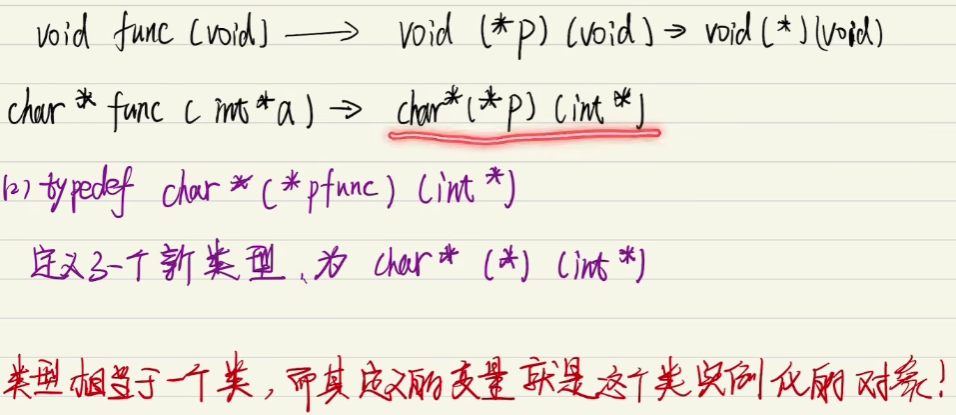 void func (void) → void (*p) (void) → void (*) (void)
char * func ( int *a ) → char* (*p) (int *)
(2) typedef char * (* pfunc) (int *)
定义了一个新类型、为 char* (*) (int *)
类型相当于一个类，而其定义的变量就是这个类实例化的对象！